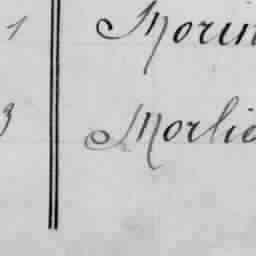 1 Morin
3 Morlie